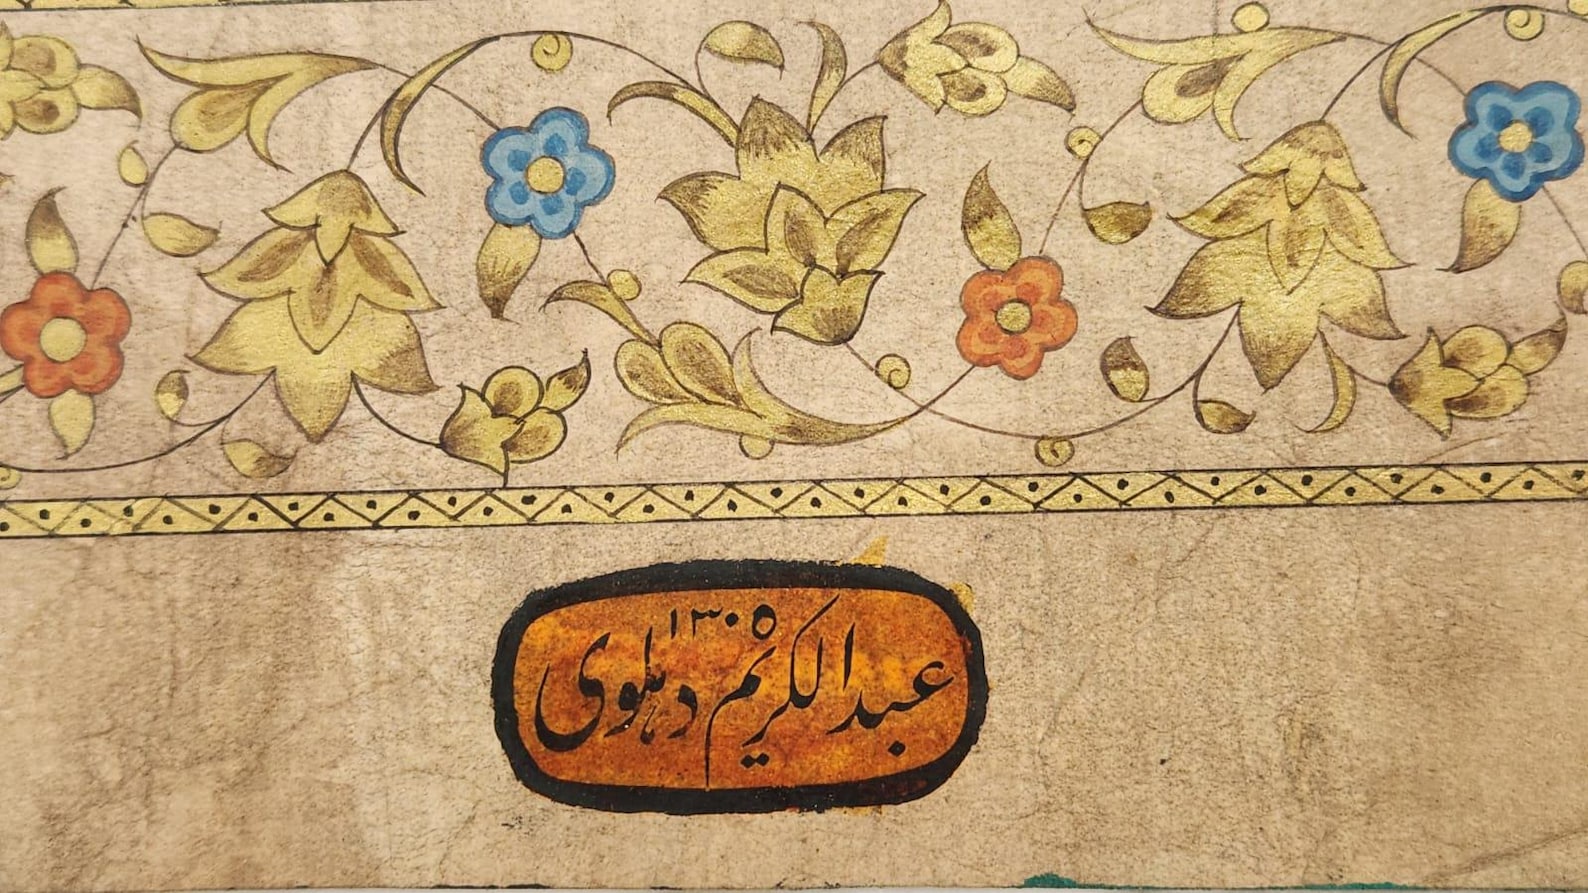 عبدالکریم دہلوی
۱۳۰۵